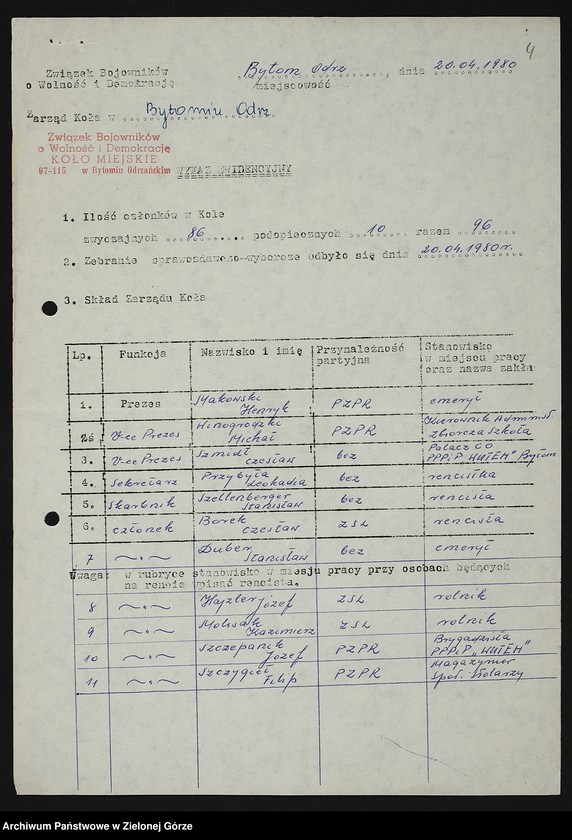 4
Związek Bojowników
o Wolność i Demokrację
Bytom Odrz. dnia 20.04.1980
/miejscowość
Zarząd Koła w Bytomiu Odrz.
Związek Bojowników
o Wolność i Demokrację
KOŁO MIEJSKIE
67-115 w Bytomiu Odrzańskim
WYKAZ EWIDENCYJNY
1. Ilość członków w Kole
zwyczajnych 86 podopiecznych 10 razem 96
2. Zebranie sprawozdawczo-wyborcze odbyło się dnia 20.04.1980r.
3. Skład Zarządu Koła
Lp. Funkcja Nazwisko i imię Przynależność partyjna Stanowisko w miejscu pracy oraz nazwa zakła
1. Prezes Makowski Henryk PZPR emeryt
2. V-ce Prezes Winogrodzki Michał PZPR Kierownik Zbiorcza Szkoła
3. V-ce Prezes Szmidt Czesław bez Palacz CO PPP.iP "HUTEM" Bytom
4. Sekretarz Przybyła Leokadia bez rencistka
5. Skarbnik Szellenberger Stanisław bez rencista
6. członek Borek Czesław ZSL rencista
7 —„— Duber Stanisław bez emeryt
Uwaga: w rubryce stanowisko w miesju pracy przy osobach będących
na rencie wpisać rencista.
8 —„— Hajzler Józef ZSL rolnik
9 —„— Kazimierz ZSL rolnik
10 —„— Szczepanik Józef PZPR Brygadzista PPP.iP "HUTEM"
11 —„— Szczygieł Filip PZPR Magazynier Spół. Stolarzy
Archiwum Państwowe w Zielonej Górze